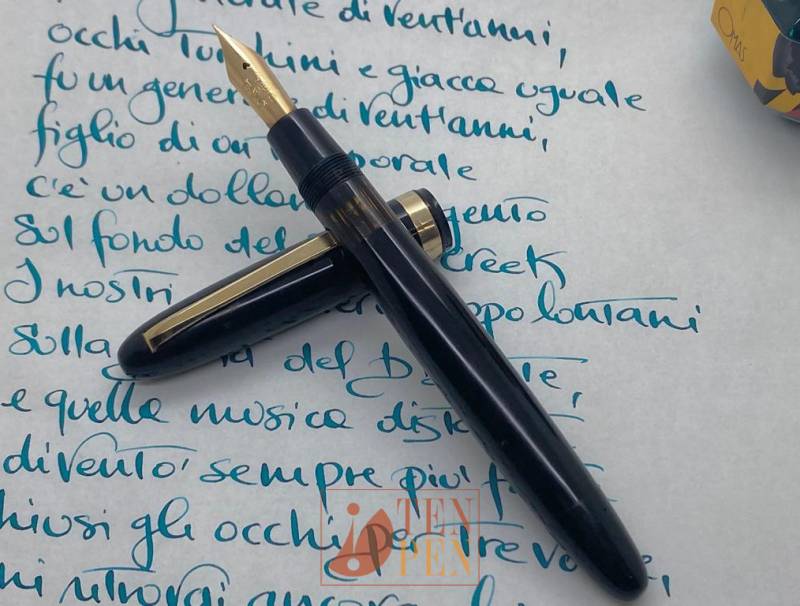 di vent'anni,
occhi Turchini e giacca uguale
fu un generale di vent'anni,
figlio di un temporale
c'è un dollaro d'argento
Sul fondo del Creek
I nostri troppo lontani
Sulla del
e quella musica
diventò sempre più
chiusi gli occhi per Tre
ancora
OMAS
TEN
PEN